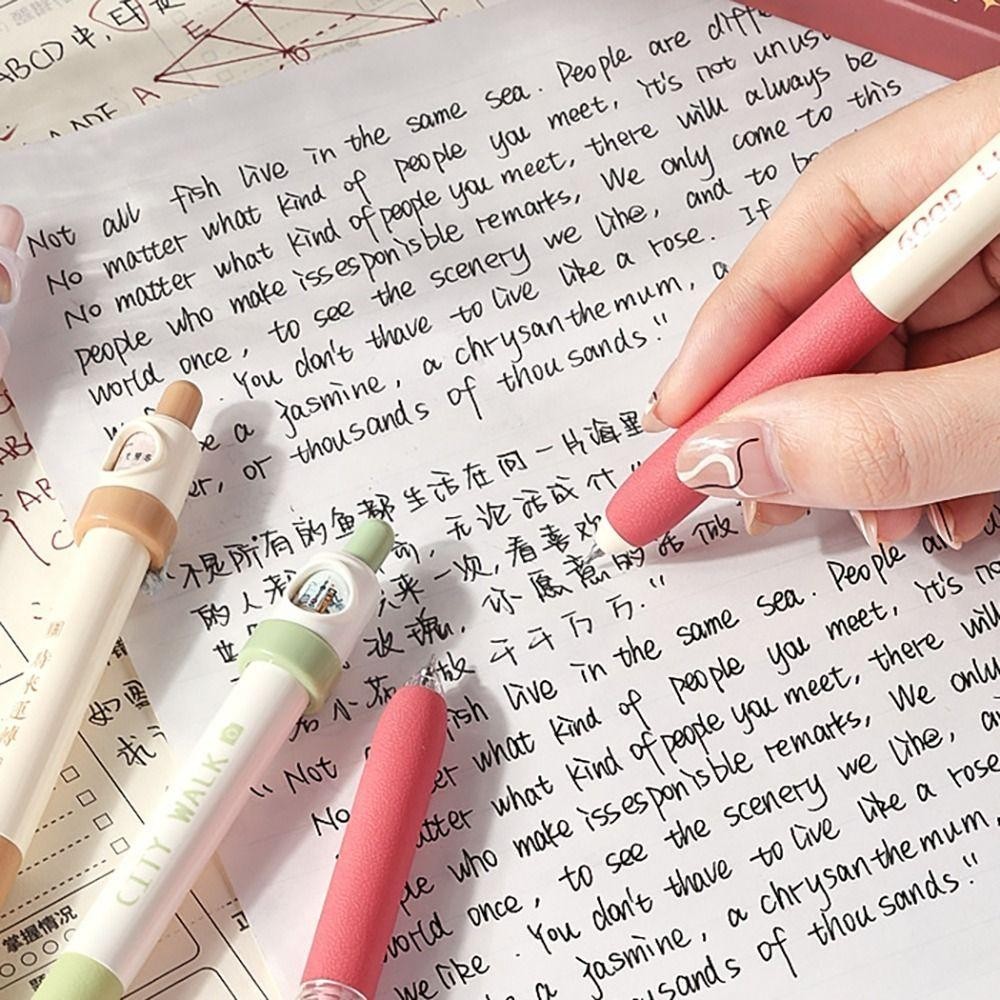 ABCD中,
E
A
Not all fish live in the same sea. People are diffe
No matter what kind of people you meet, it's not unusu
No matter what kind of people you meet, there will always be
people who make issesponisble remarks, We only come to this
world once, to see the scenery we like, and to be
You don't thave to live like a rose. If
a jasmine, a chrysanthemum, a
or thousands of thousands."
不是所有的鱼都生活在同一片海里
的人 无论活成什
来一次,看喜欢
玫瑰,你愿意的话 做
做千千万万."
"Not fish live in the same sea. People a
No what kind of people you meet, it's no
matter what kind of people you meet, there will
who make issesponisble remarks, We only
world once, to see the scenery we like, a
we like. You don't thave to live like a rose
a jasmine, a chrysanthemum,
thousands of thousands."
GOOD
時來運轉
CITY WALK
如图
掌握情况